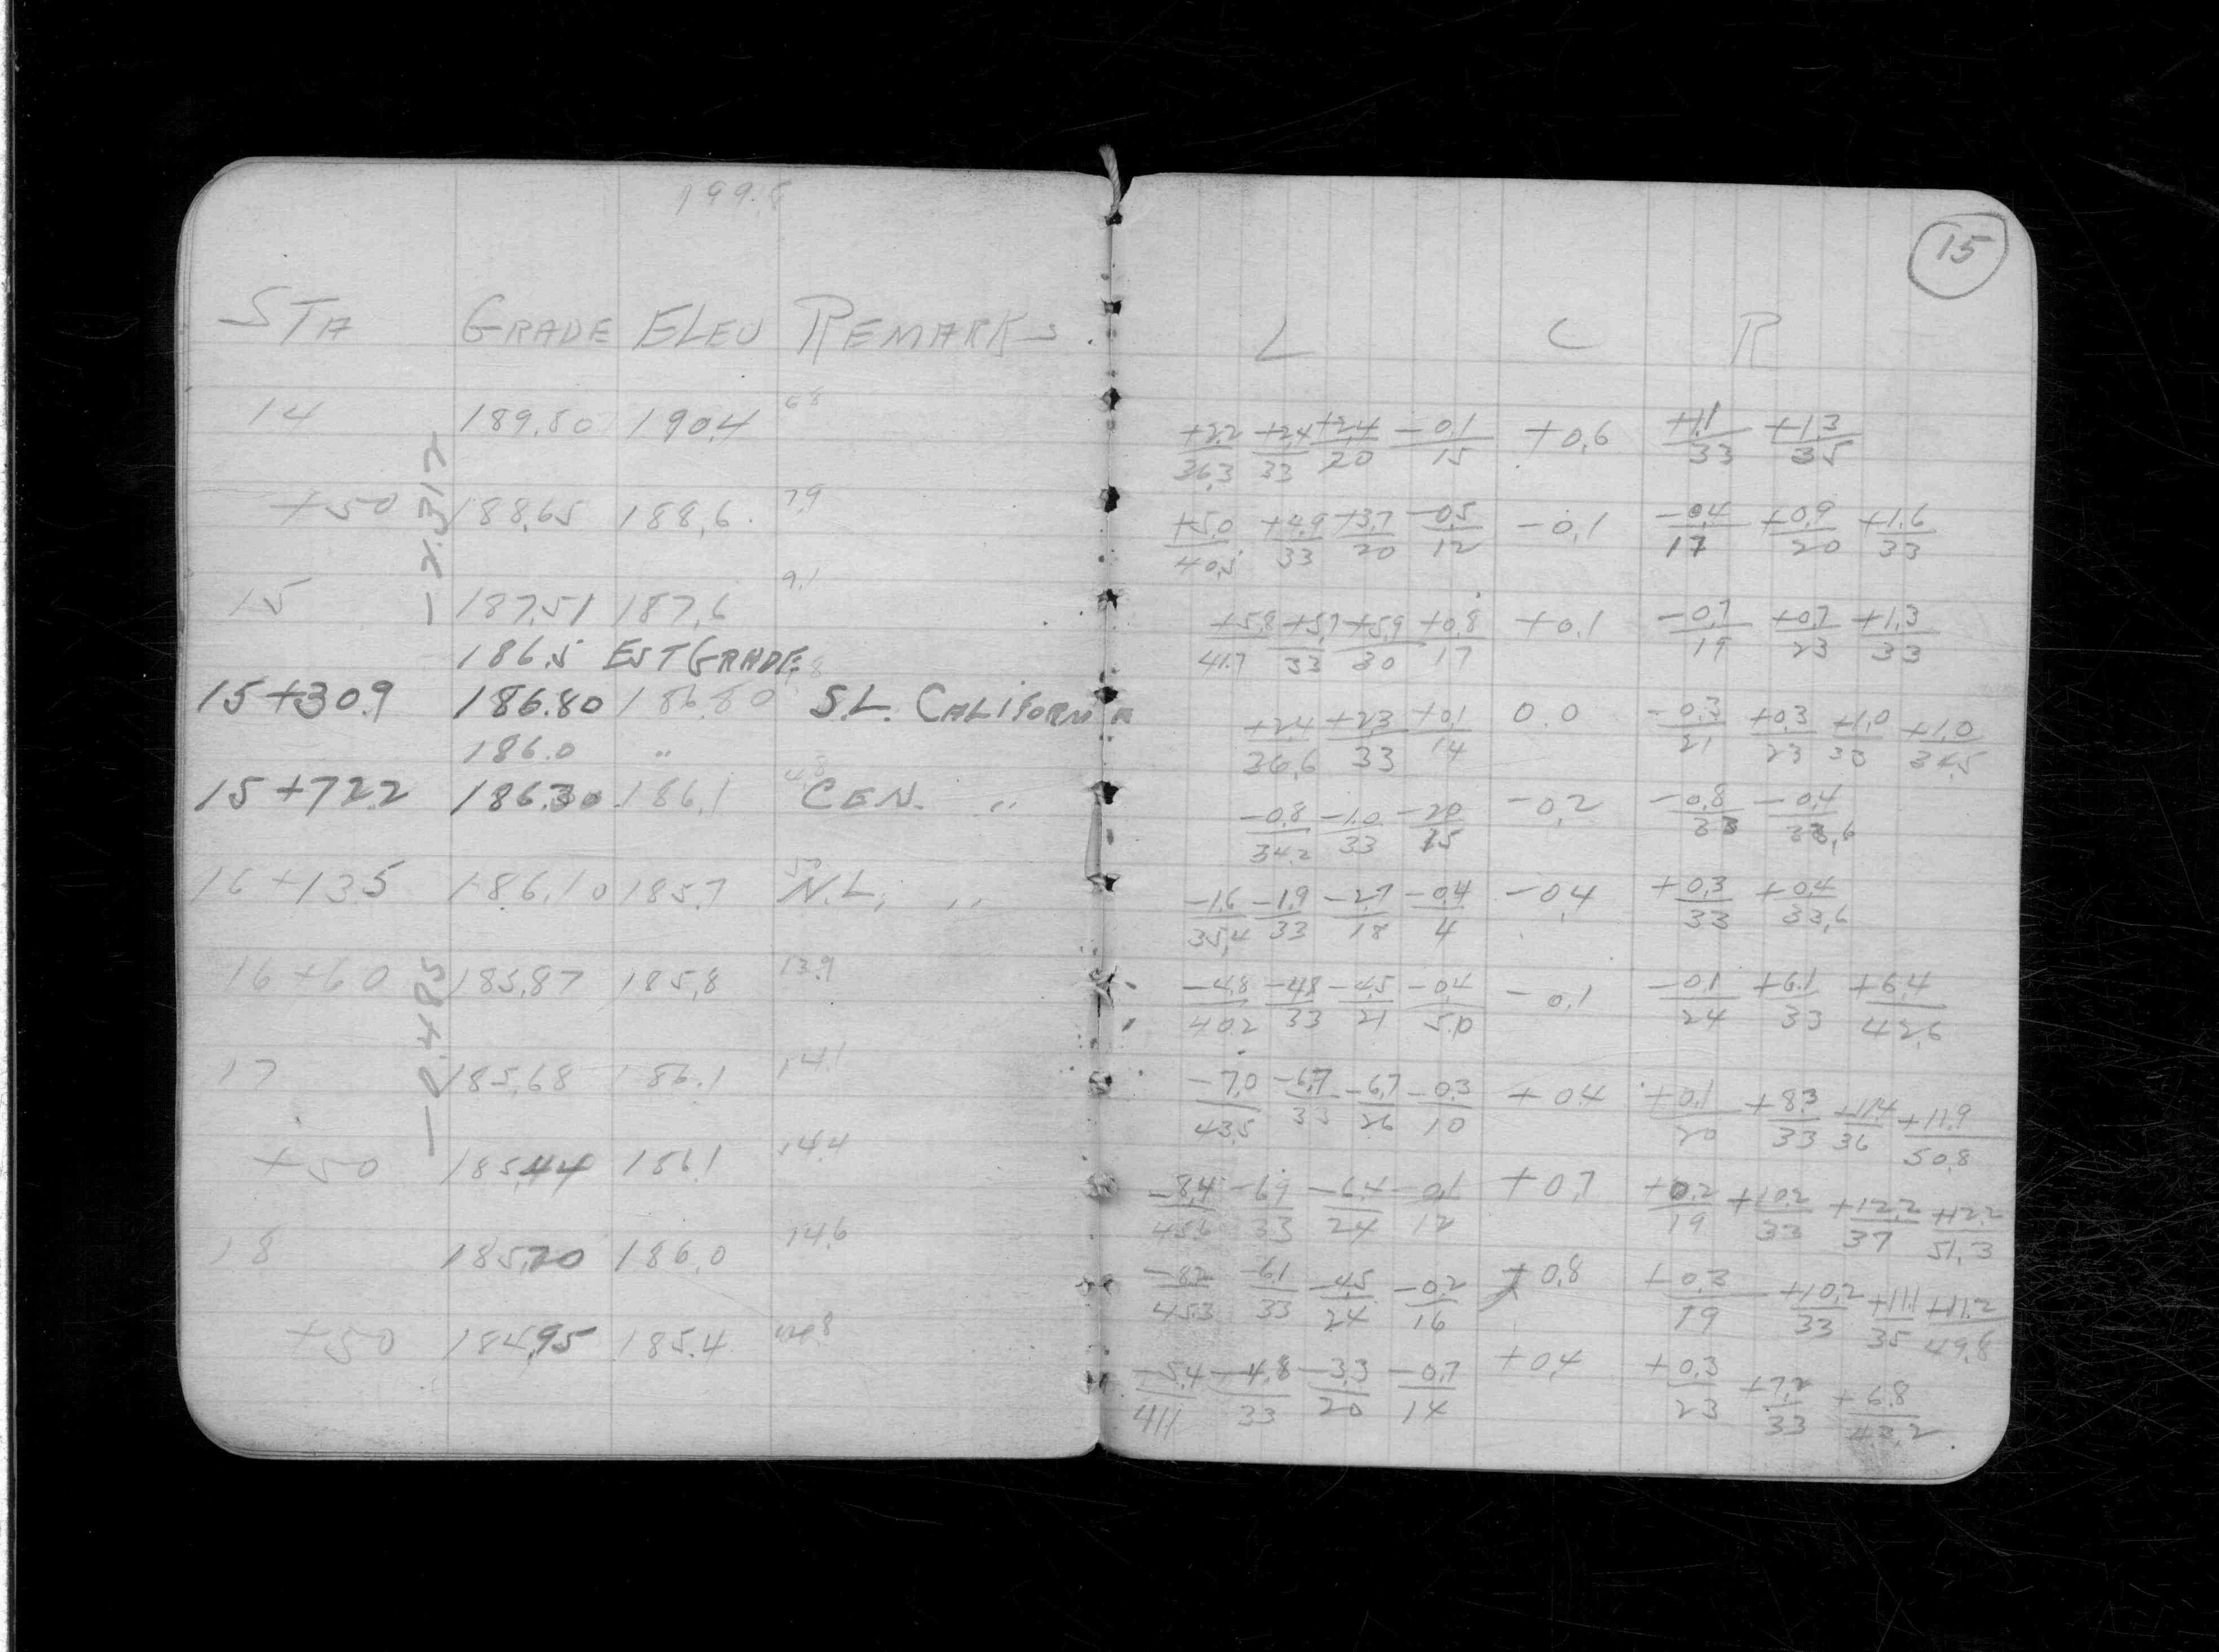 199.8
15
STA GRADE ELEV REMARKS L C R
14 189.80 190.4 +2.2/36.3 +2.4/33 +2.4/20 -0.1/15 +0.6 +1.1/33 +1.3/35
-2.312
+50 188.65 188.6 7.9 +5.0/40.5 +4.9/33 +3.7/20 -0.5/12 -0.1 -0.4/17 +0.9/20 +1.6/33
15 187.51 187.6 9.1 +5.8/41.7 +5.7/33 +5.9/30 +0.8/17 +0.1 -0.7/19 +0.7/23 +1.3/33
186.5 EST GRADE
15+30.9 186.80 186.80 S.L. CALIFORNIA +2.4/36.6 +2.3/33 +0.1/14 0.0 -0.3/21 +0.3/23 +1.0/33 +1.0/34.5
186.0 "
15+72.2 186.30 186.1 CEN. " -0.8/34.2 -1.0/33 -2.0/15 -0.2 -0.8/33 -0.4/33.6
16+13.5 186.10 185.7 N.L. " -1.6/35.4 -1.9/33 -2.7/18 -0.4/4 -0.4 +0.3/33 +0.4/33.6
16+60 185.87 185.8 13.9 -4.8/40.2 -4.8/33 -4.5/21 -0.4/5.0 -0.1 -0.1/24 +6.1/33 +6.4/42.6
-0.485
17 185.68 186.1 14.1 -7.0/43.5 -6.7/33 -6.7/26 -0.3/10 +0.4 +0.1/20 +8.3/33 +11.4/36 +11.9/50.8
+50 185.44 186.1 14.4 -8.4/45.6 -6.9/33 -6.4/24 -0.1/12 +0.7 +0.2/19 +10.2/33 +12.2/37 +12.2/51.3
18 185.20 186.0 14.6 -8.2/45.3 -6.1/33 -4.5/24 -0.2/16 +0.8 +0.3/19 +10.2/33 +11.1/35 +11.2/49.8
+50 184.95 185.4 -5.4/41.1 -4.8/33 -3.3/20 -0.7/14 +0.4 +0.3/23 +7.2/33 +6.8/43.2